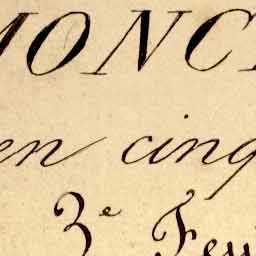 MONC
en cinq
3e Feu